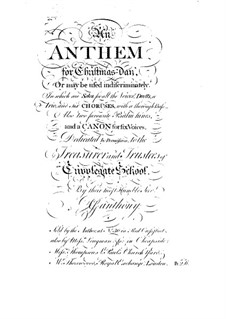 An
ANTHEM
for Christmas-Day,
Or may be used indiscriminately.
In which are Solos for all the Voices, Duetts, a
Trio, and Six CHORUSES, with a thorough Bass.
Also two favourite Psalm tunes,
and a CANON for six Voices,
Dedicated by Permission, to the
Treasurer and Trustees of
Cripplegate School,
By their most Humble Ser.
Anthony
Sold by the Author, at in Red Cross street,
also by Mess. Longman & in Cheapside;
Mess. Thompsons, St. Pauls Church Yard;
Royal Exchange London.